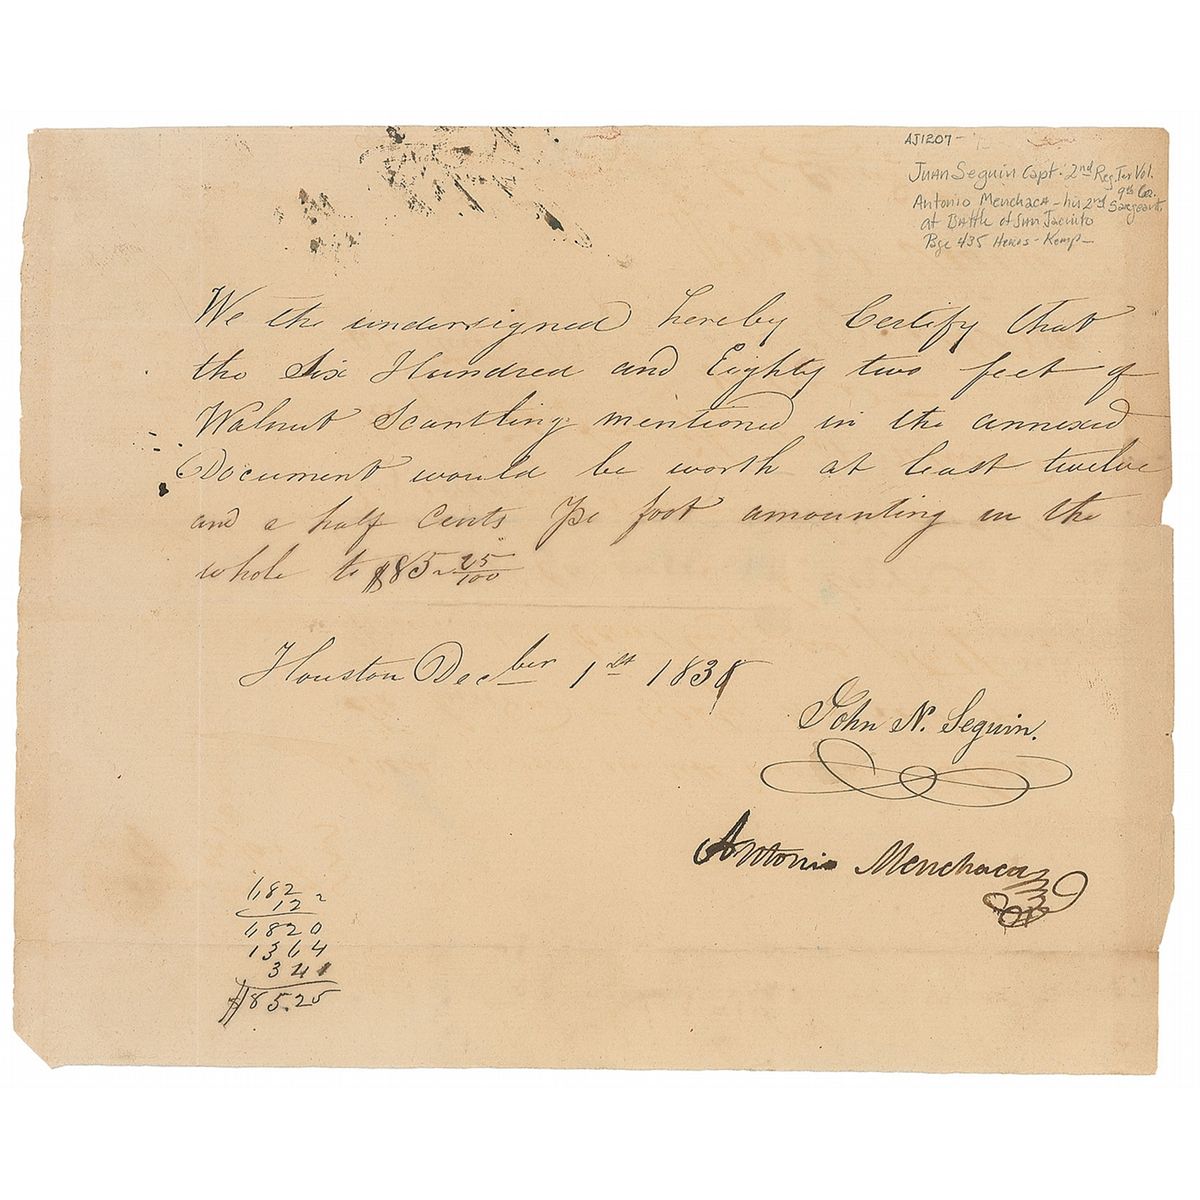 AJ1207-
Juan Seguin Capt. 2nd Reg Tex Vol.
9th Co.
Antonio Menchaca - his 2nd Sargeant
at Battle of San Jacinto
Pge 435 Heros - Kemp
We the undersigned hereby Certify that
the Six Hundred and Eighty two feet of
Walnut Scantling mentioned in the annexed
Document would be worth at least twelve
and a half Cents pe foot amounting in the
whole to $85 25/100
Houston Decber 1st 1838
John N. Seguin.
Antonio Menchaca
682
12 2
6820
1364
341
$85.25